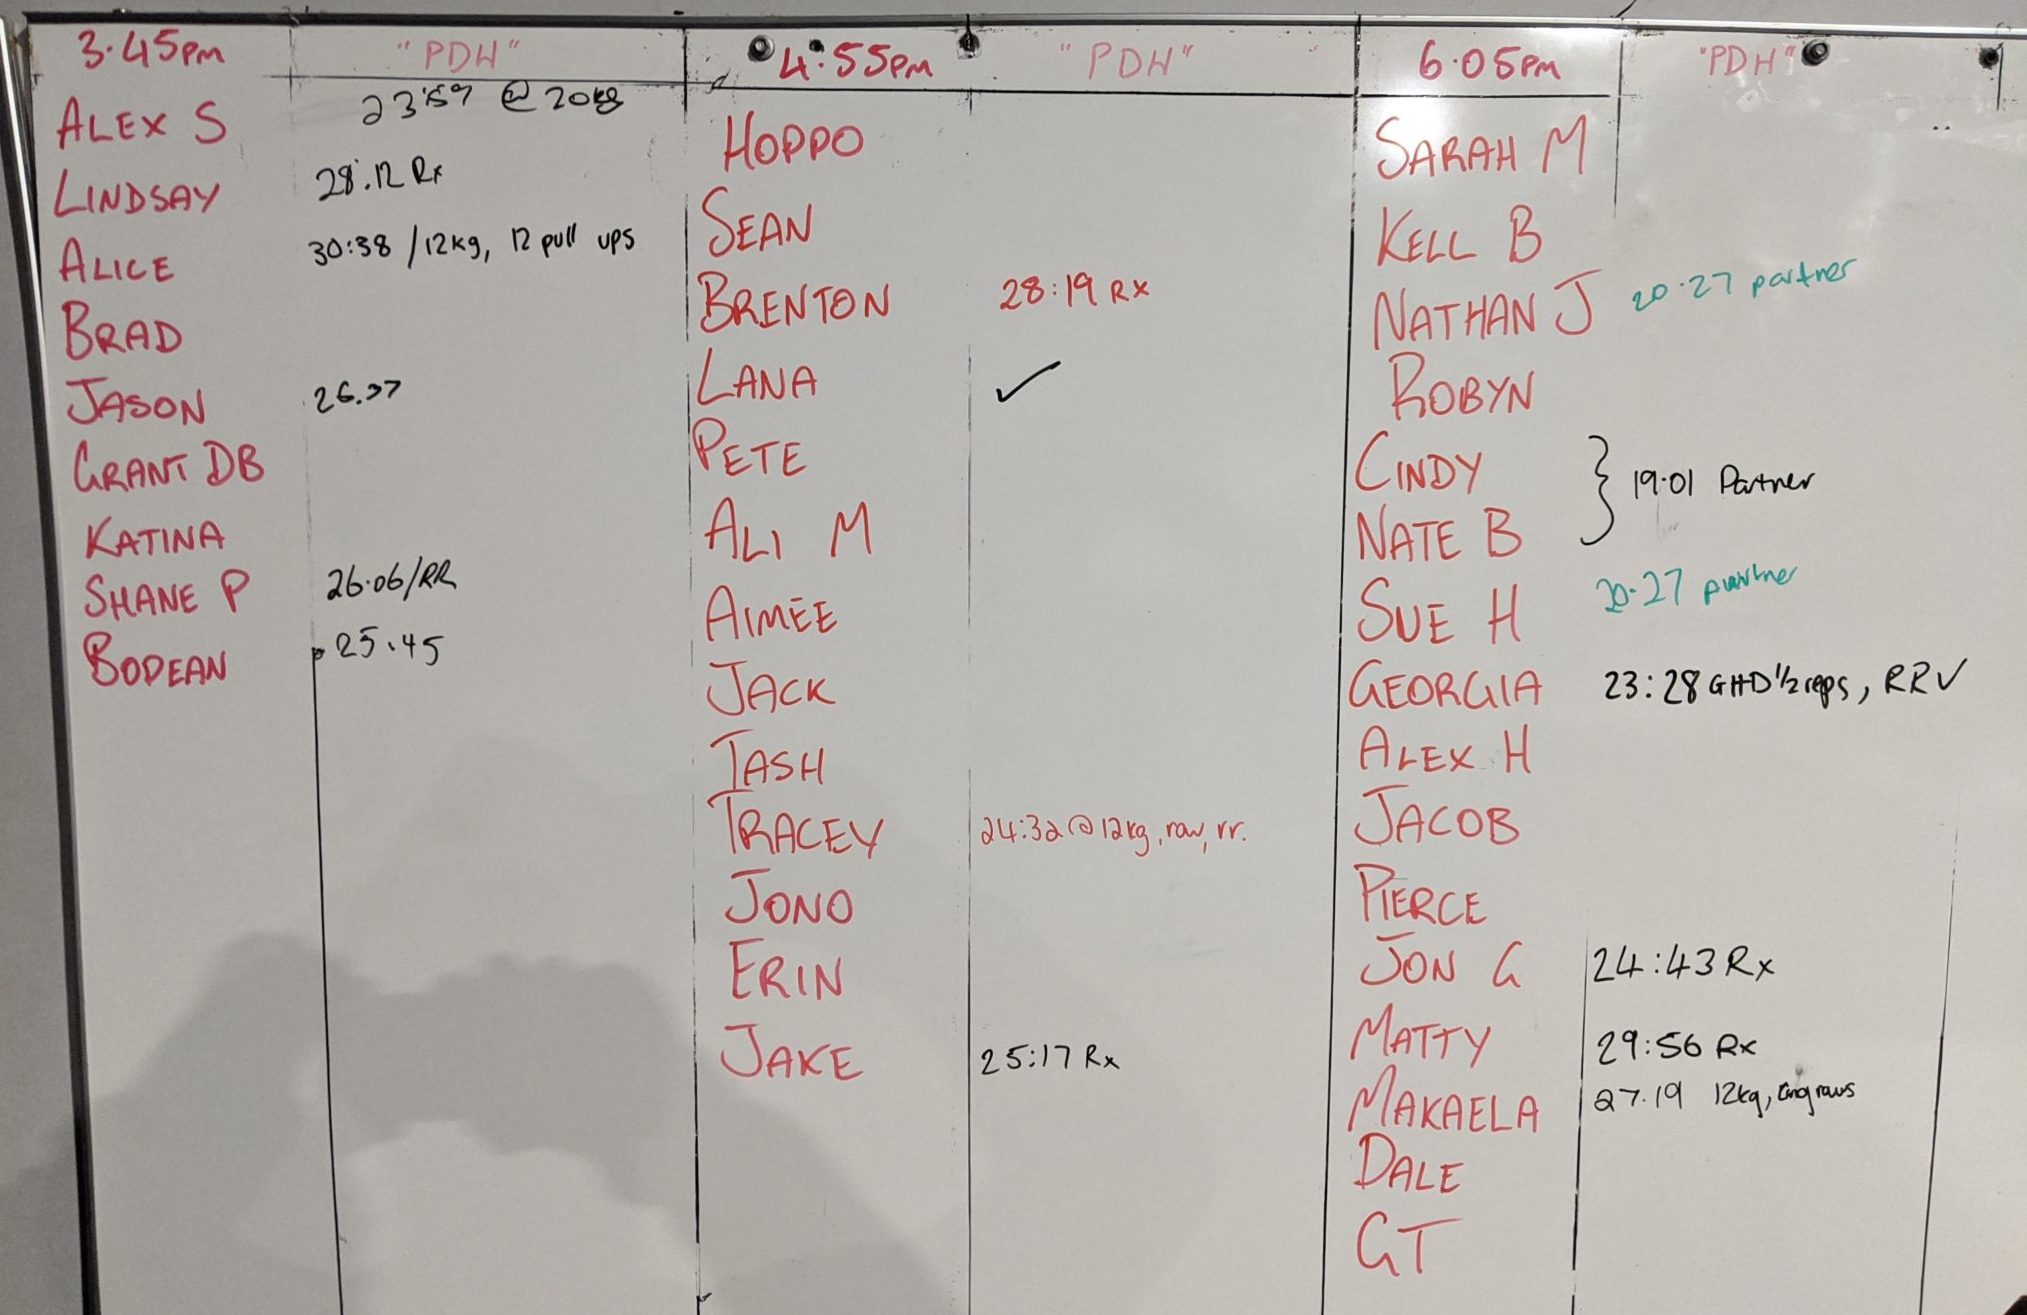 3·45PM "PDH"
ALEX S 23:59 @ 20kg
LINDSAY 28:12 Rx
ALICE 30:38 / 12kg, 12 pull ups
BRAD
JASON 26.37
GRANT DB
KATINA
SHANE P 26·06/RR
BODEAN 25·45
4:55PM "PDH"
HOPPO
SEAN
BRENTON 28:19 RX
LANA ✓
PETE
ALI M
AIMEE
JACK
TASH
TRACEY 24:32 @ 12kg, row, rr.
JONO
ERIN
JAKE 25:17 Rx
6·05PM "PDH"
SARAH M
KELL B
NATHAN J 20·27 partner
ROBYN
CINDY
NATE B } 19·01 Partner
SUE H 20·27 partner
GEORGIA 23:28 GHD 1/2 reps, RR ✓
ALEX H
JACOB
PIERCE
JON G 24:43 Rx
MATTY 29:56 Rx
MAKAELA 27.19 12kg, rows
DALE
GT